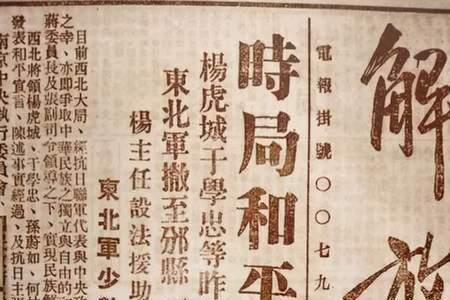 解放
電報掛號 〇〇七九
時局和平
楊虎城于學忠等昨
東北軍撤至邠縣
楊主任設法援助
東北軍少
目前西北大局、經抗日聯軍代表與中央政
之幸、亦即爭取中華民族之獨立與自由的
蔣委員長及張副司令領導之下、實現民族解
西北將領楊虎城、于學忠、孫蔚如、何
發表和平宣言、陳述事實經過、及抗日主
南京中央執行委員會、